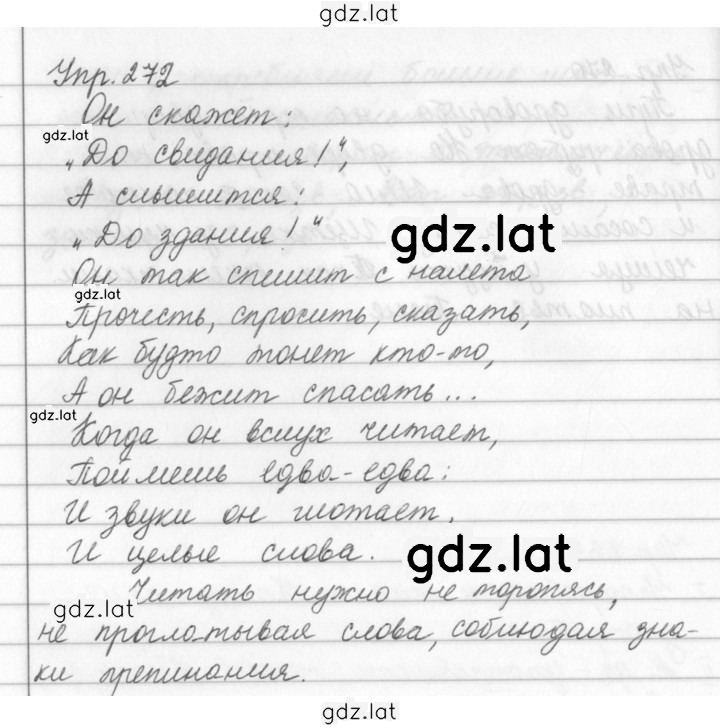 gdz.lat
Упр. 272
Он скажет:
gdz.lat
„До свидания!“,
А слышится:
„До здания!“
gdz.lat
Он так спешит с налета
gdz.lat
Прочесть, спросить, сказать,
Как будто тонет кто-то,
А он бежит спасать...
gdz.lat
Когда он вслух читает,
Поймешь едва-едва:
И звуки он глотает,
И целые слова.
gdz.lat
Читать нужно не торопясь,
gdz.lat
не проглатывая слова, соблюдая зна-
ки препинания.
gdz.lat